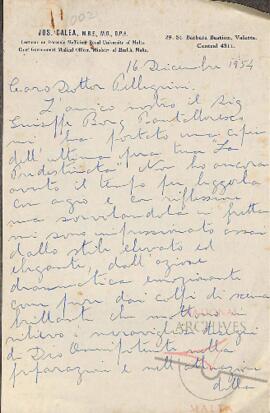 1002
JOS. GALEA, M.B.E., M.D., D.P.H.
Lecturer on Forensic Medicine Royal University of Malta.
Chief Government Medical Officer, Ministry of Health, Malta.
29, St. Barbara Bastion, Valletta.
Central 4311.
16 Dicembre 1954
Caro Dottor Pellegrini,
L'amico nostro il Sig
Giuseppe Borg Pantalleresco
mi ha portato una copia
dell'ultima opera tua "La
Predestinata". Non ho ancora
avuto il tempo per leggerla
con agio e con riflessione
ma scorrendola in fretta
mi sono impressionato assai
dallo stile elevato ed
elegante, dall'azione
drammatica
dai colpi di scena
brillanti che mettono in
rilievo i
di Dio Onnipotente nella
preparazione e nell'attuazione
della
ARCHIVES
MALTA